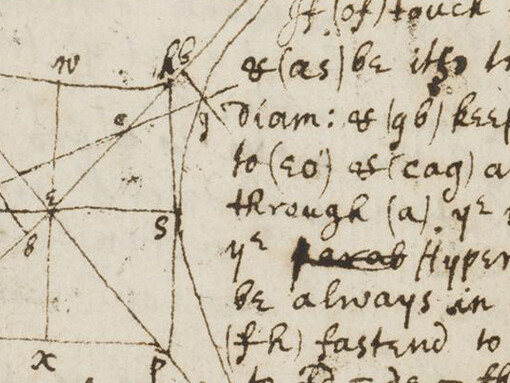 If (of) touch
& (as) be its
diam: & (gb) keep
to (eo) & (cag) a
through (a) yᵉ
yᵉ parab Hyper
be always in
(fh) fastend to
w
c
g
e
s
x
p